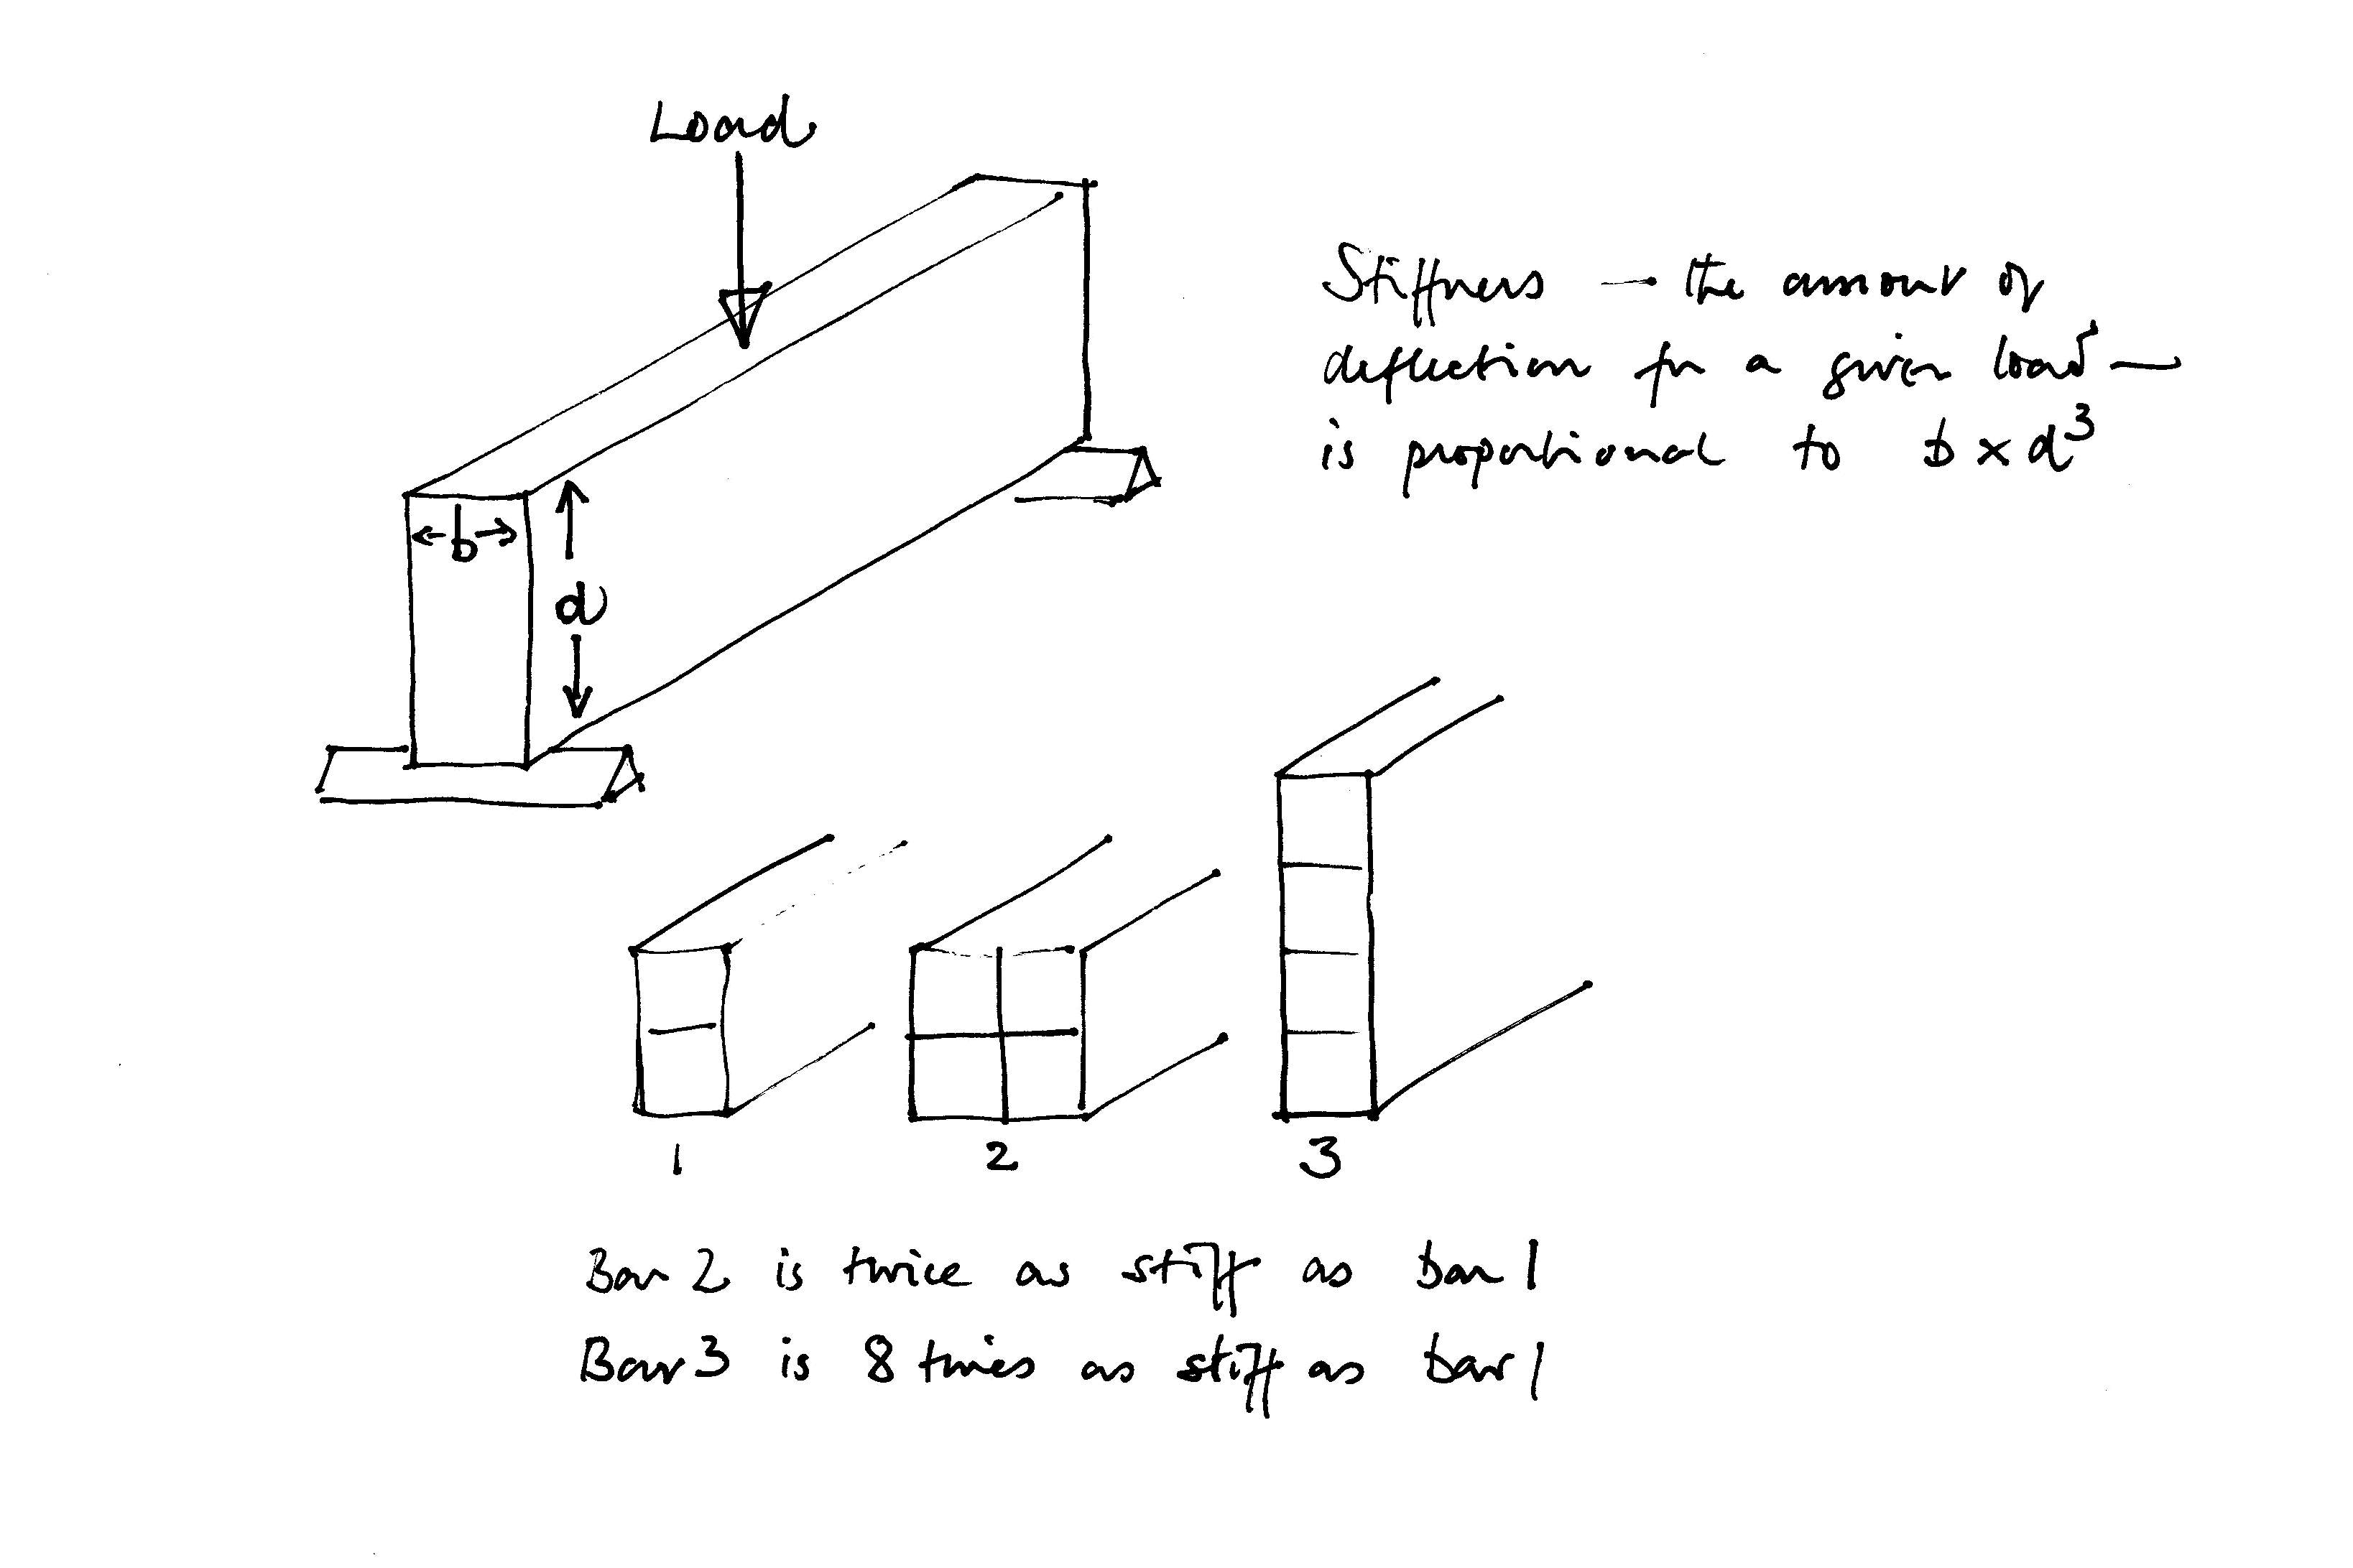 Load
Stiffness — the amount of
deflection for a given load —
is proportional to b × d³
b
d
1
2
3
Bar 2 is twice as stiff as bar 1
Bar 3 is 8 times as stiff as bar 1